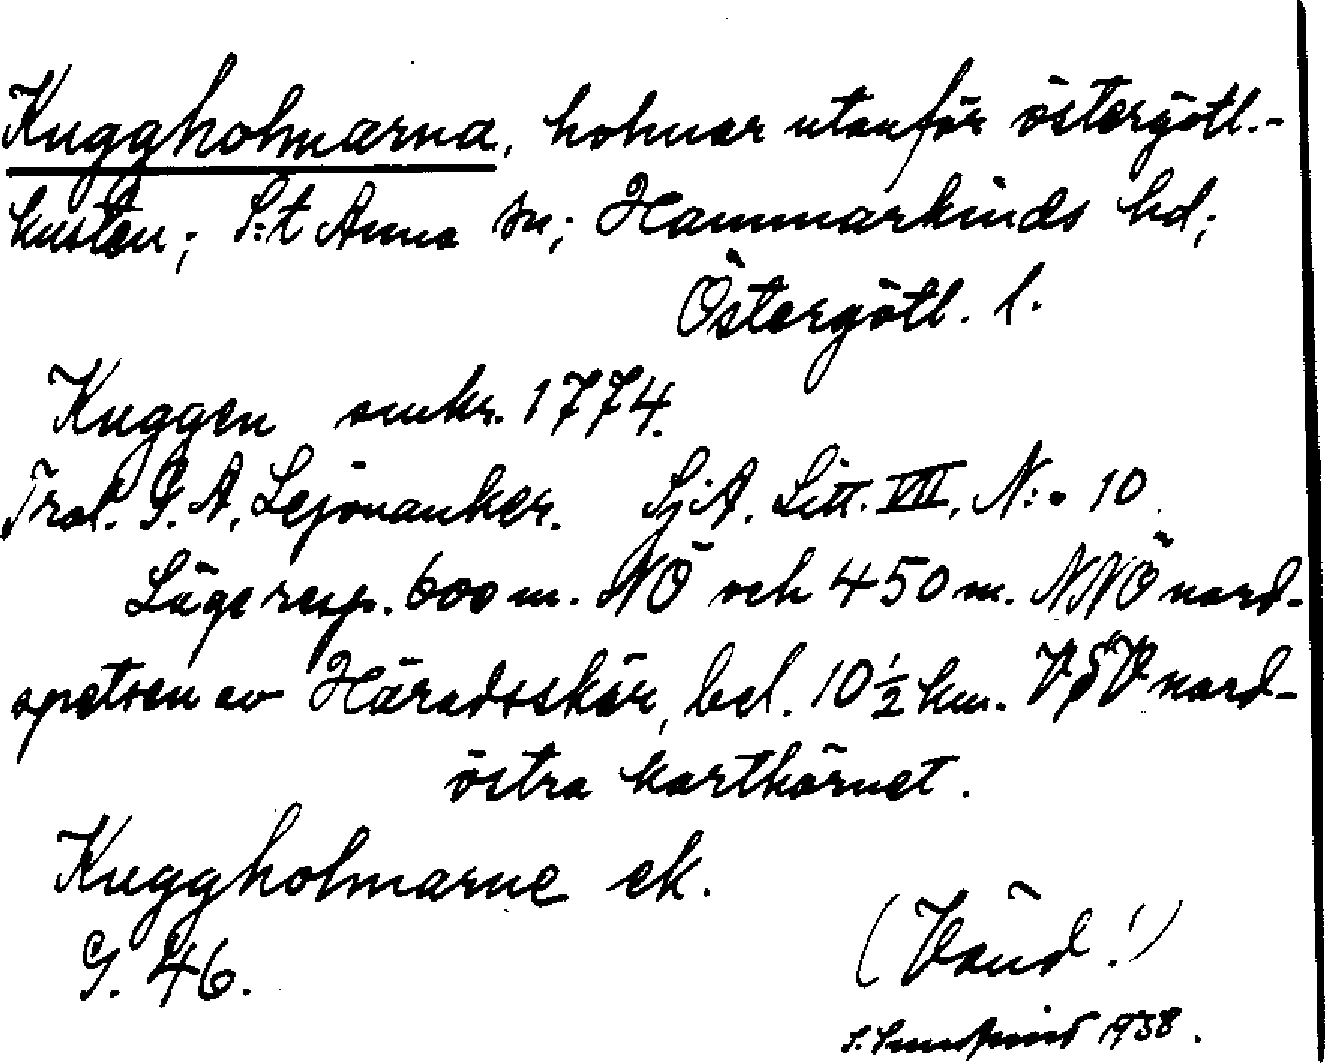 Kuggholmarna, holmar utanför östergötl.-
kusten; S:t Anna sn; Hammarkinds hd;
Östergötl. l.
Kuggen omkr. 1774.
Trol. G. A. Lejonanker. SjA. Litt. VIII, N:o 10.
Läge resp. 600 m. NÖ och 450 m. NNÖ nord-
spetsen av Häradsskär, bel. 10 ½ km. VSV nord-
östra karthörnet.
Kuggholmarne ek.
G. 46.
(Vänd!)
1938.